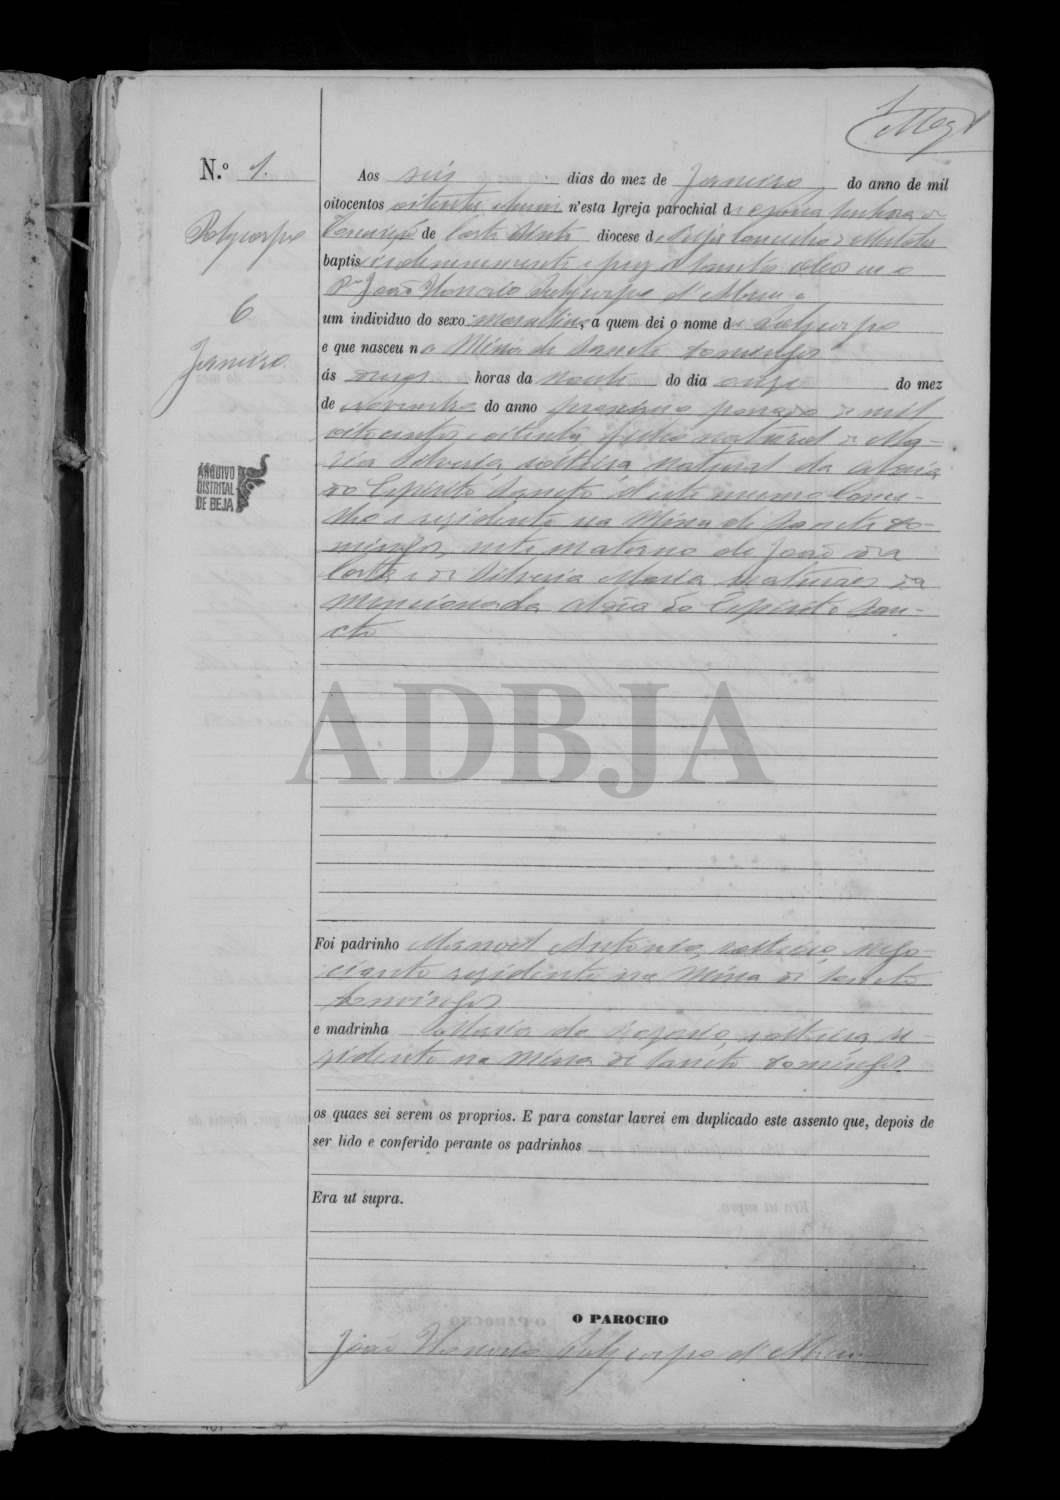 1
N.º 1.
Polycarpo
6
Janeiro.
ARQUIVO
DISTRITAL
DE BEJA
Aos seis dias do mez de Janeiro do anno de mil
oitocentos oitenta e hum n'esta Igreja parochial de Nossa Senhora da
Conceição de Corte Pinto diocese de Beja Concelho de Mertola
baptisei solemnemente e puz os Santos oleos eu o
P.e João Polycarpo d'
um individuo do sexo masculino, a quem dei o nome de Polycarpo
e que nasceu na Mina de Sancto Domingos
ás onze horas da noute do dia onze do mez
de Novembro do anno proximo passado de mil
oitocentos e oitenta, filho natural de Ma-
ria solteira natural da aldeia
do Espirito Sancto d'este mesmo Conce-
lho e residente na Mina de Sancto Do-
mingos, neto materno de João da
Costa e de Silveria Maria naturaes da
mencionada aldeia do Espirito San-
cto
ADBJA
Foi padrinho Manoel Antonio, solteiro, nego-
ciante residente na Mina de Sancto
Domingos
e madrinha Maria do Rozario, solteira, re-
zidente na Mina de Sancto Domingos.
os quaes sei serem os proprios. E para constar lavrei em duplicado este assento que, depois de
ser lido e conferido perante os padrinhos
Era ut supra.
O PAROCHO
João Polycarpo d'